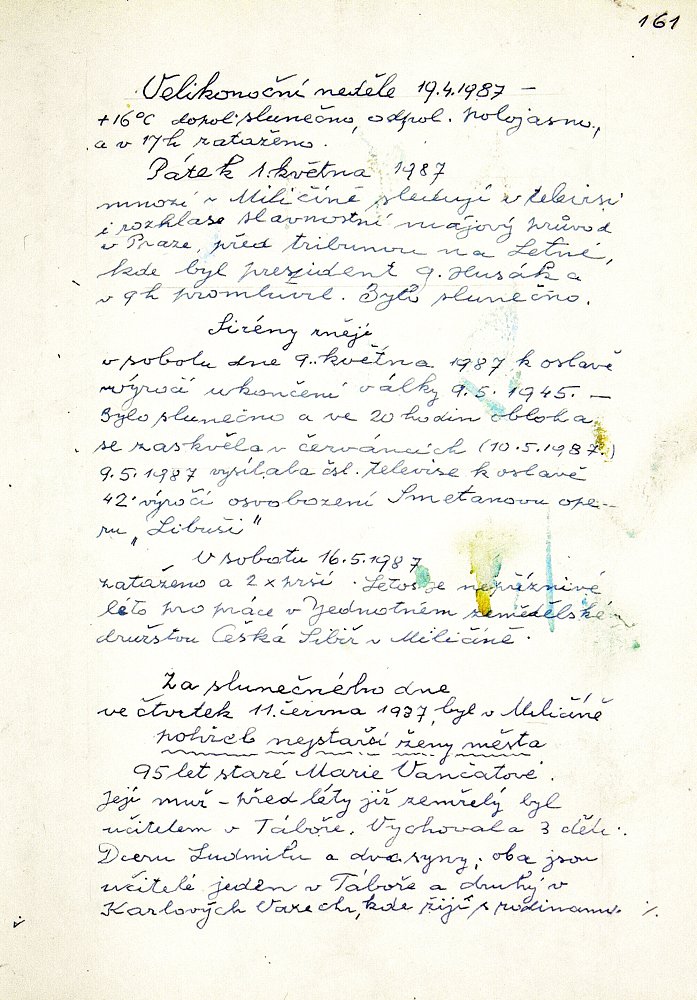 161
Velikonoční neděle 19.4.1987 –
+16°C dopol. slunečno, odpol. polojasno,
a v 17h zataženo.
Pátek 1. května 1987
mnozí v Miličíně sledují v televisi
i rozhlase slavnostní májový průvod
v Praze, před tribunou na Letné,
kde byl president G. Husák a
v 9h promluvil. Bylo slunečno.
Sirény znějí
v sobotu dne 9. května 1987 k oslavě
výročí ukončení války 9.5.1945. –
Bylo slunečno a ve 20 hodin obloha
se zaskvěla v červáncích (10.5.1987.)
9.5.1987 vysílala čsl. televise k oslavě
42. výročí osvobození Smetanovu ope-
ru „Libuši"
V sobotu 16.5.1987
zataženo a 2x prší. Letos je nepříznivé
léto pro práce v Jednotném zemědělském
družstvu Česká Sibiř v Miličíně.
Za slunečného dne
ve čtvrtek 11. června 1987, byl v Miličíně
pohřeb nejstarší ženy města
95 let staré Marie Vančatové.
Její muž – před léty již zemřelý byl
učitelem v Táboře. Vychovala 3 děti.
Dceru Ludmilu a dva syny; oba jsou
učitelé jeden v Táboře a druhý v
Karlových Varech, kde žijí s rodinami. ./.